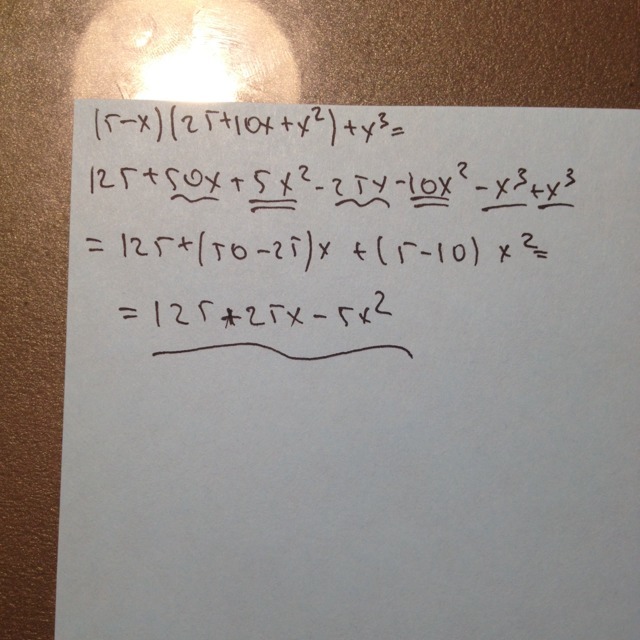 (5-x)(25+10x+x²)+x³=
125+50x+5x²-25x-10x²-x³+x³
=125+(50-25)x+(5-10)x²=
=125+25x-5x²